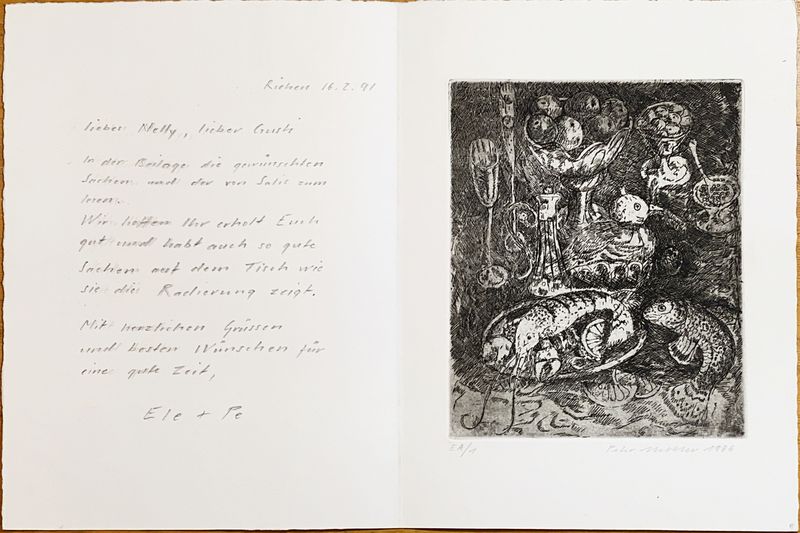 Riehen 16.2.91
lieber Nelly, lieber Gusti
In der Beilage die gewünschten
Sachen und der von Salis zum
lesen.
Wir hoffen Ihr erholt Euch
gut und habt auch so gute
Sachen auf dem Tisch wie
sie die Radierung zeigt.
Mit herzlichen Grüssen
und besten Wünschen für
eine gute Zeit,
Ele + Pe
EA/1
1986